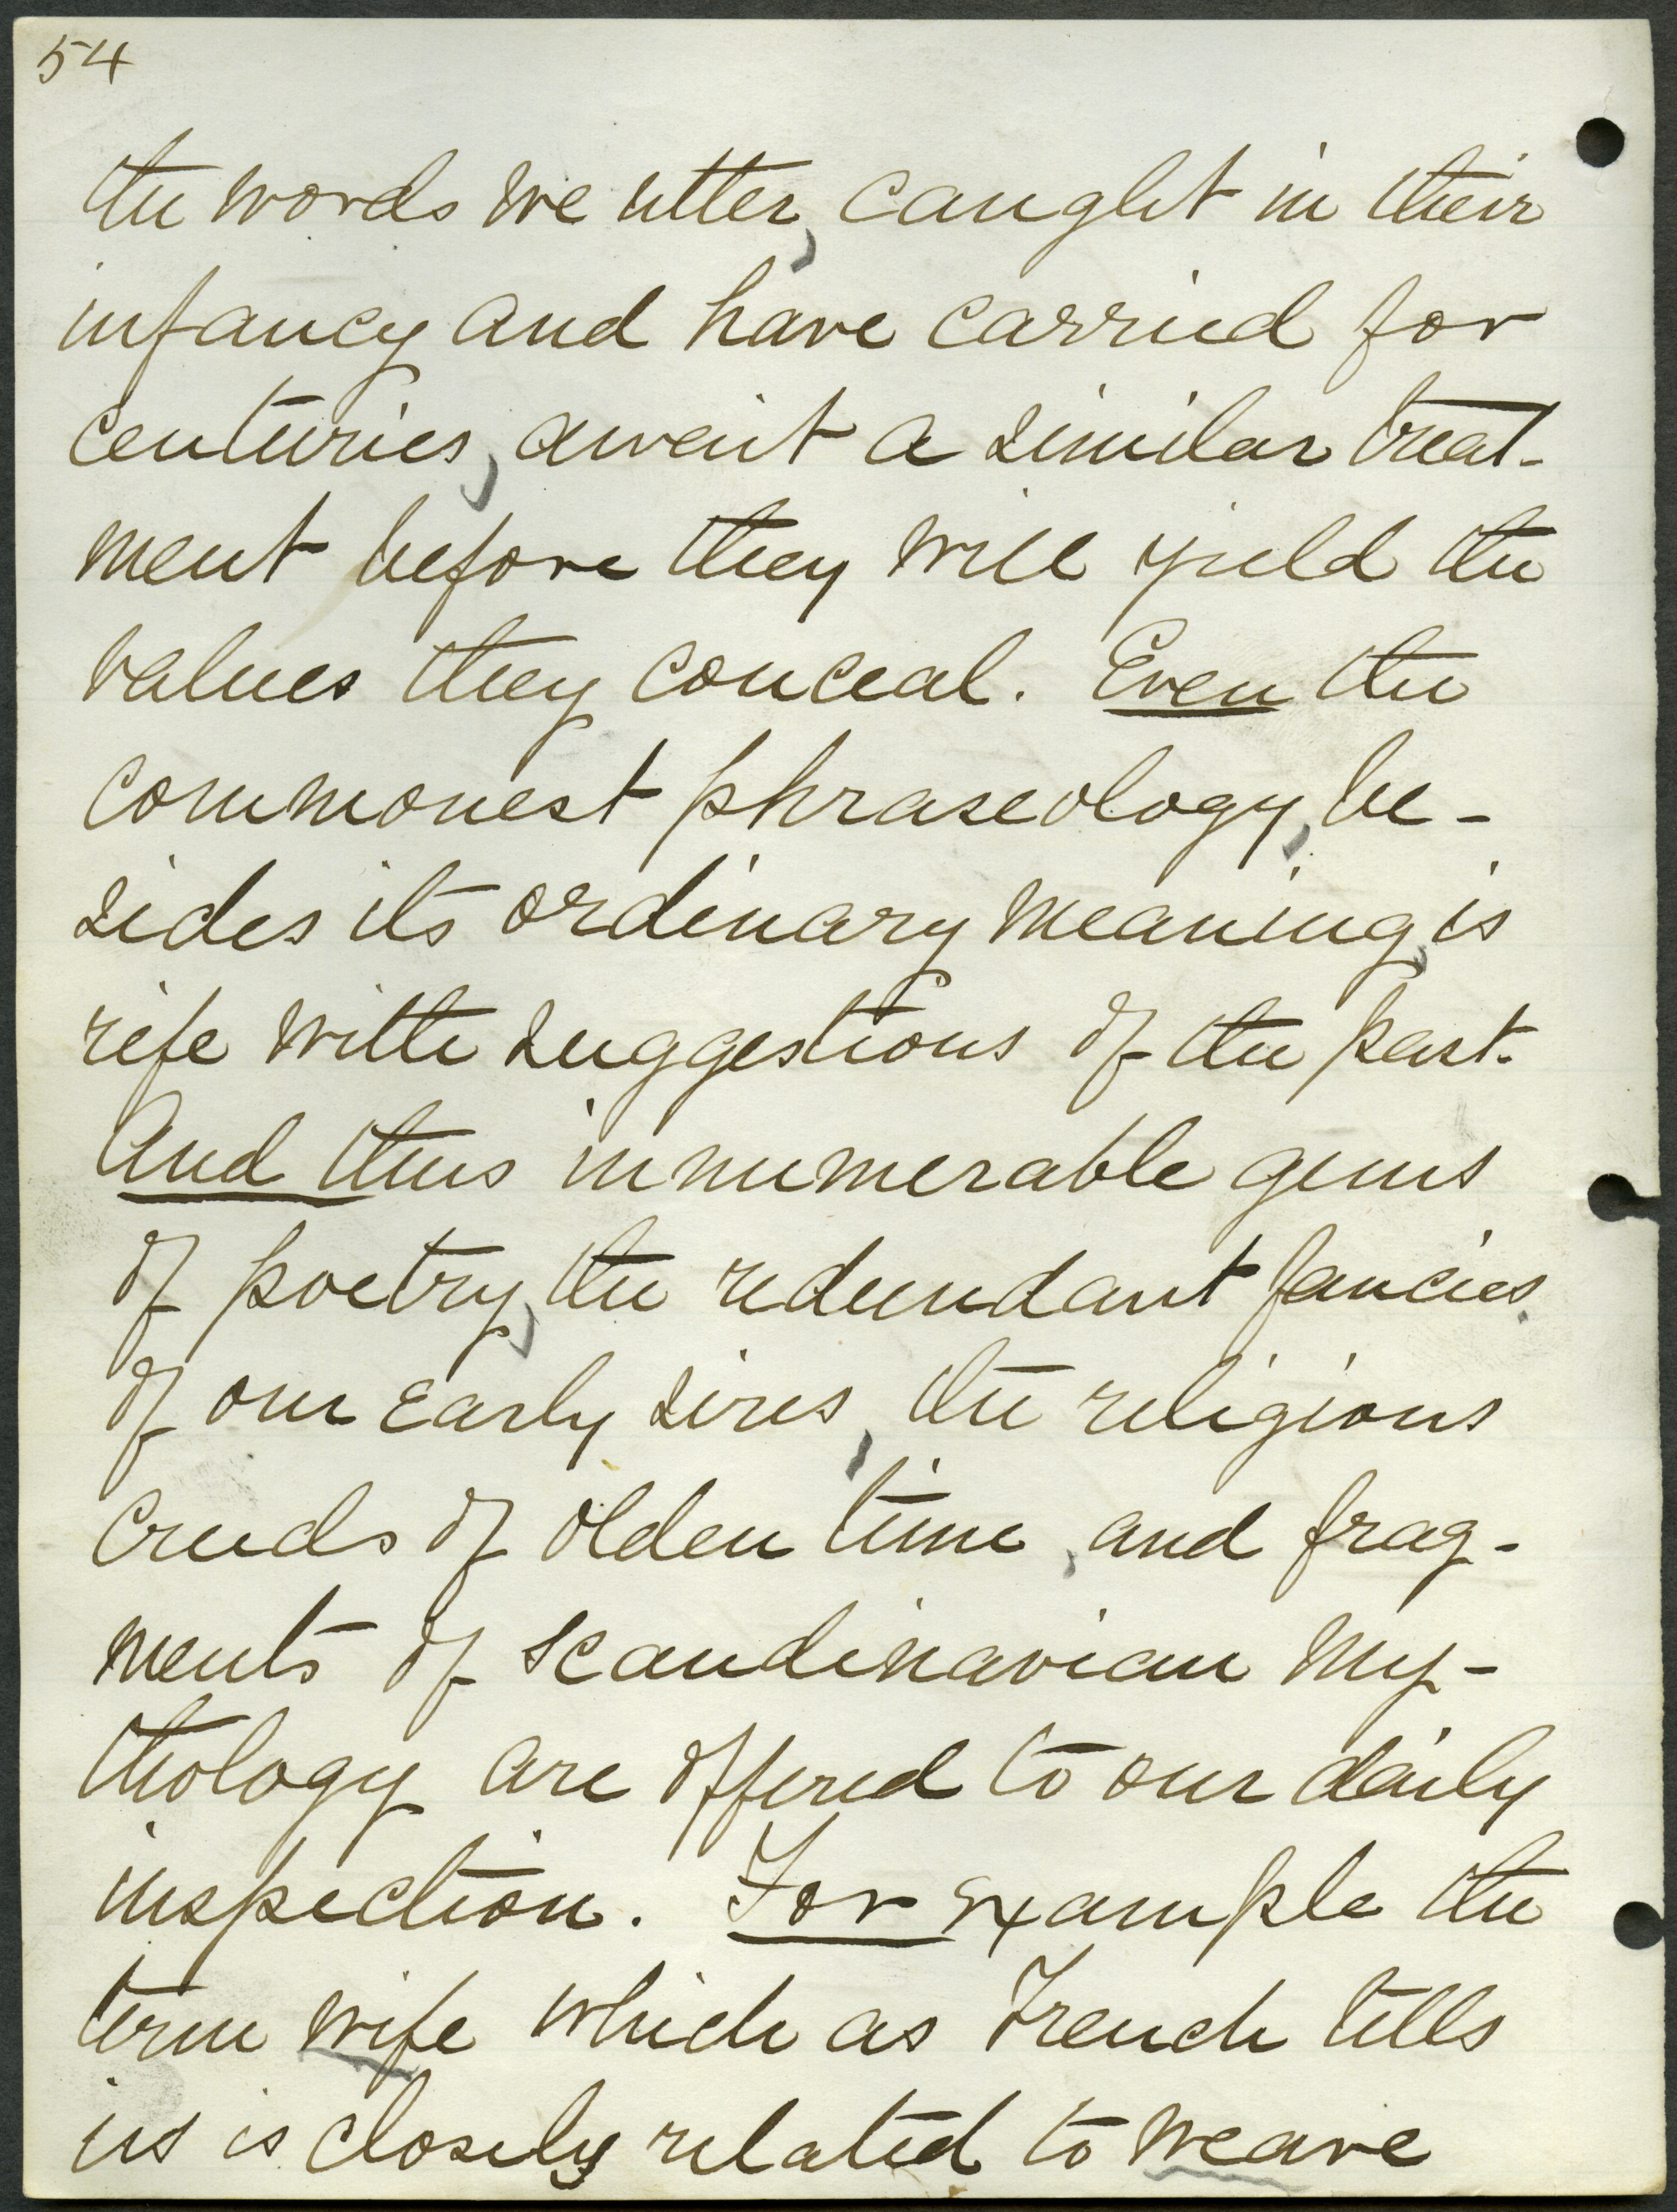 54
the words we utter, caught in their
infancy and have carried for
centuries, await a similar treat-
ment before they will yield the
values they conceal. Even the
commonest phraseology, be-
sides its ordinary meaning, is
rife with suggestions of the past.
And thus innumerable gems
of poetry, the redundant fancies
of our early sires, the religious
creeds of olden time, and frag-
ments of Scandinavian my-
thology are offered to our daily
inspection. For example the
term wife which as French tells
us is closely related to weave